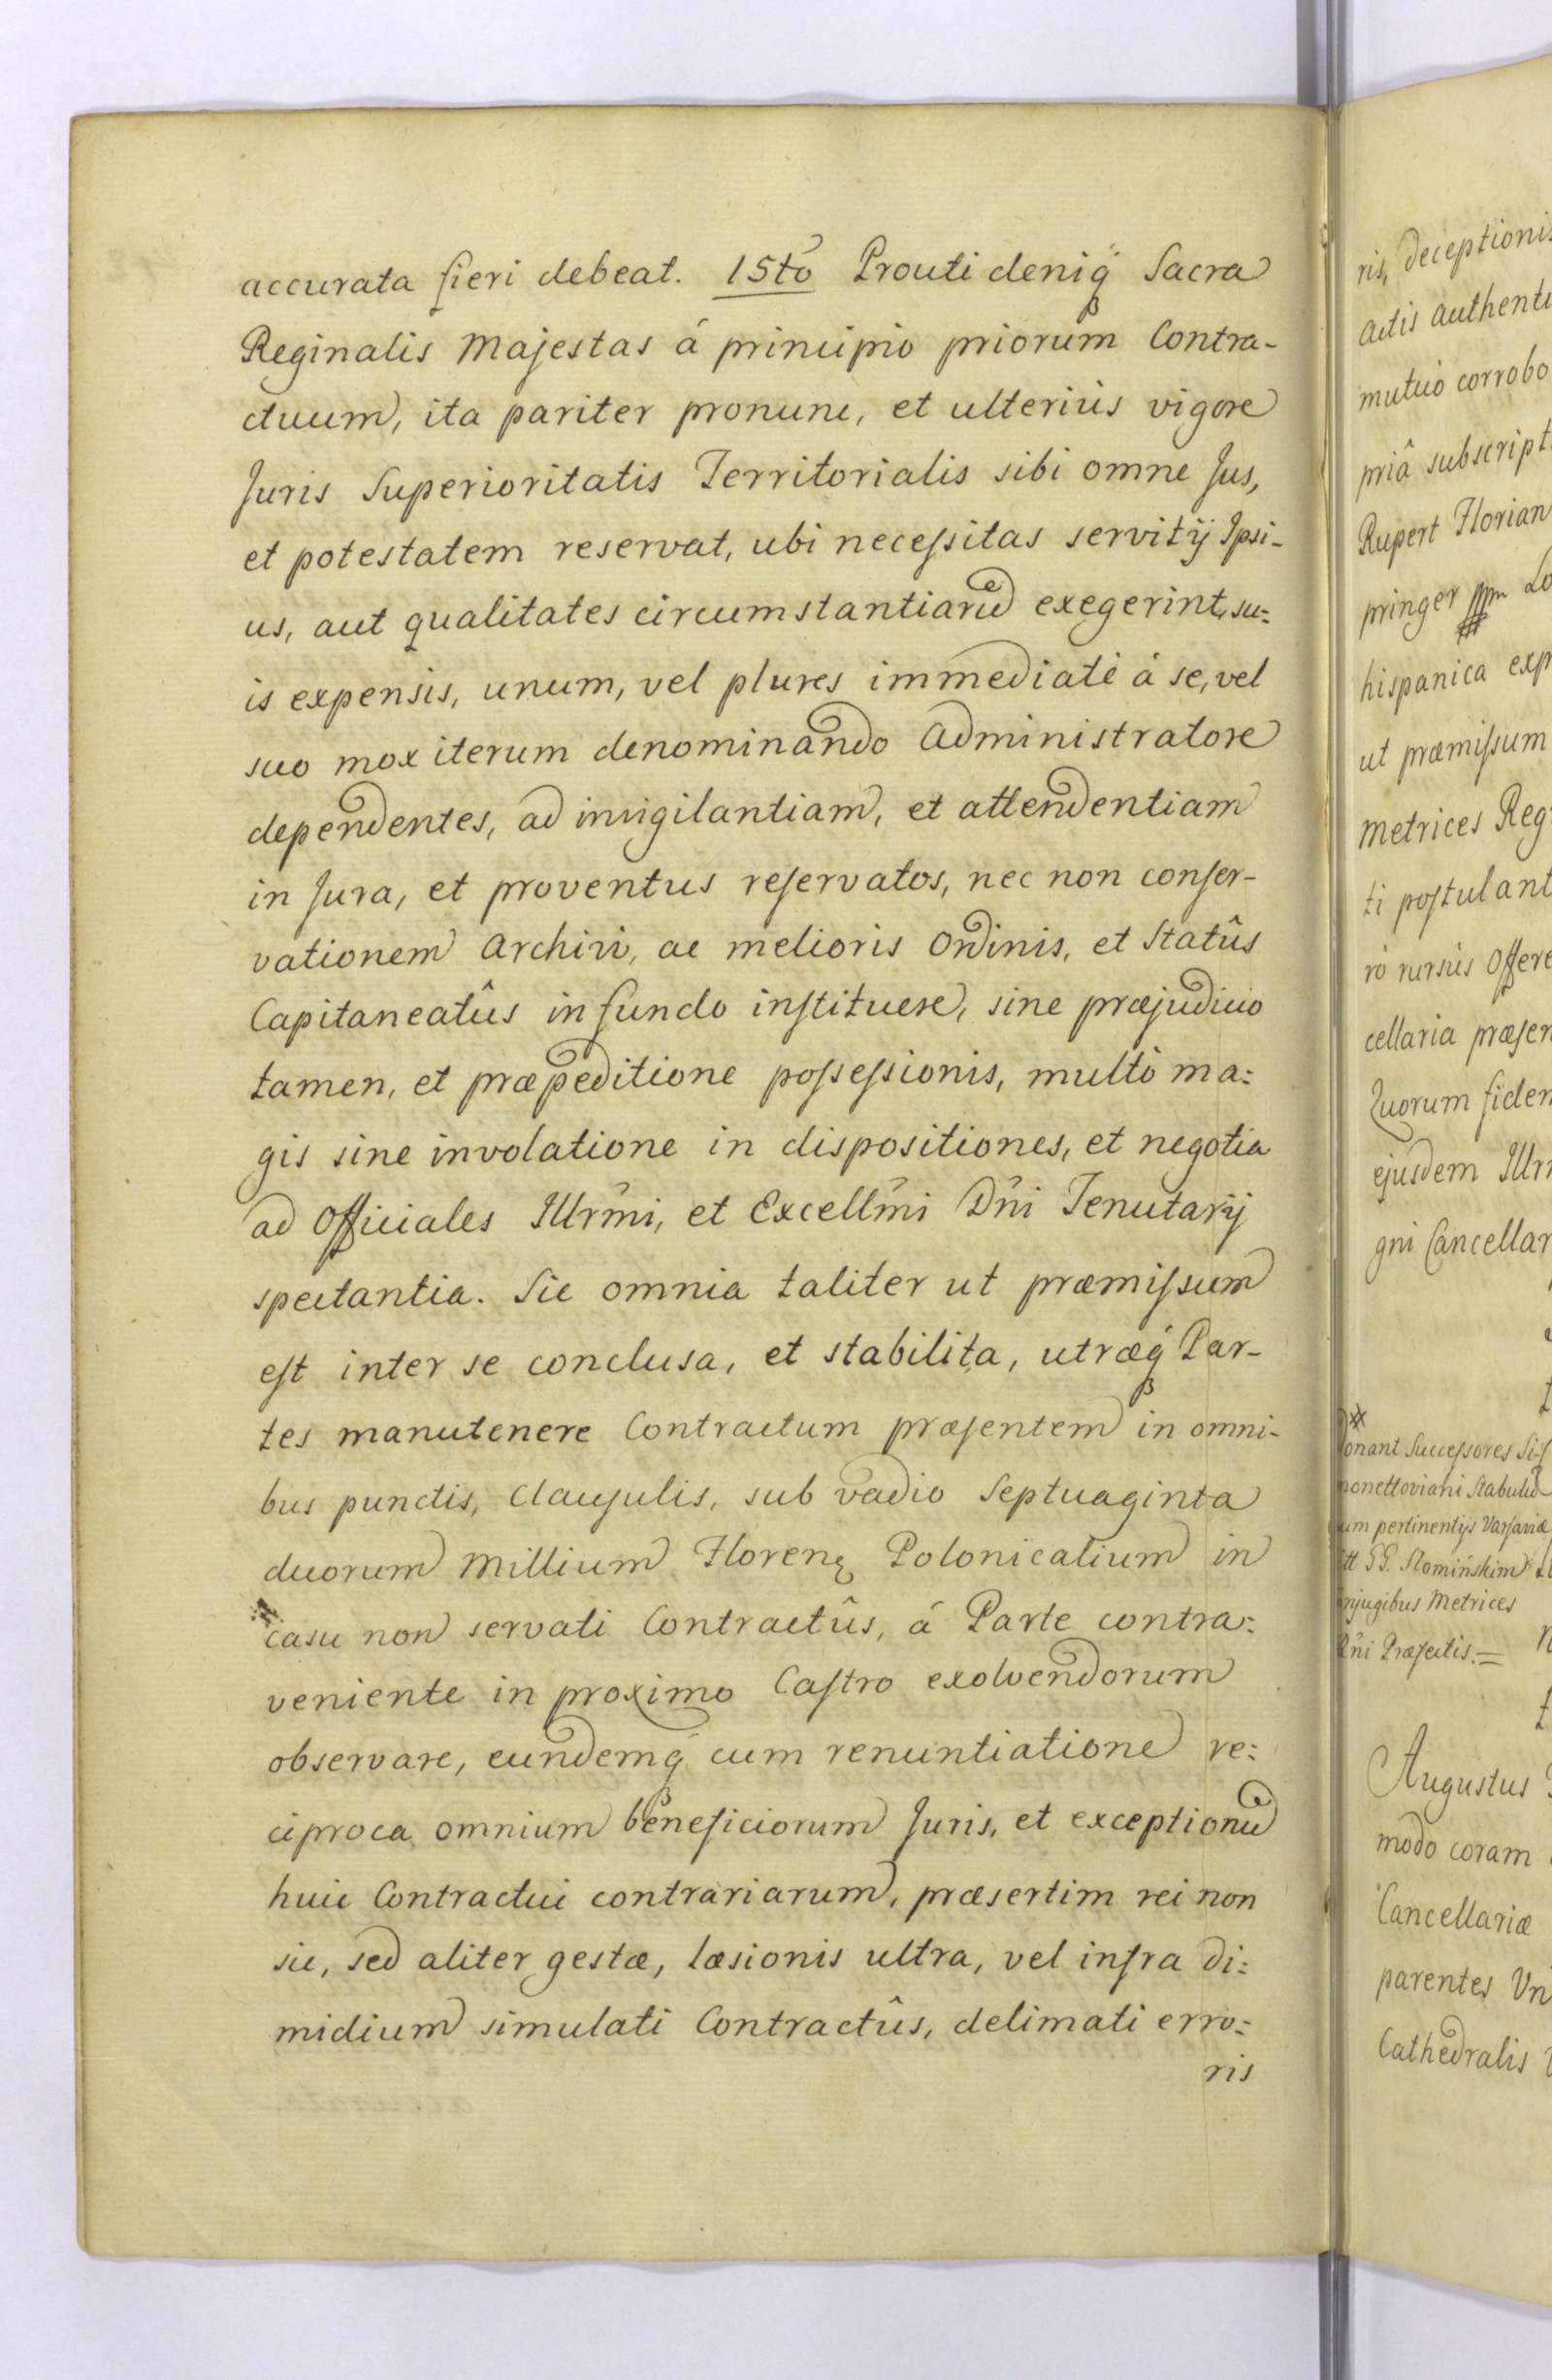 accurata fieri debeat. 15tō Prouti deniq́ Sacra
Reginalis Majestas á principio priorum Contra-
ctuum, ita pariter pronunc, et ulteriùs vigore
Juris Superioritatis Territorialis sibi omne Jus,
et potestatem reservat, ubi necessitas servitÿ Ipsi-
us, aut qualitates circumstantiarū exegerint, su:
is expensis, unum, vel plures immediatè à se, vel
suo mox iterum denominando Administratore
dependentes, ad invigilantiam, et attendentiam
in Jura, et proventus reservatos, nec non conser-
vationem Archivi, ac melioris Ordinis, et Statûs
Capitaneatûs in fundo instituere, sine præjudicio
tamen, et præpeditione possessionis, multò ma:
gis sine involatione in dispositiones, et negotia
ad Officiales Illrm̃i, et Excellm̃i Dñi Tenutarÿ
spectantia. Sic omnia taliter ut præmissum
est inter se conclusa, et stabilita, utræq́ Par-
tes manutenere Contractum præsentem in omni-
bus punctis, Clausulis, sub vadio Septuaginta
duorum Millium Florenꝝ Polonicalium in
casu non servati Contractûs, á Parte contra:
veniente in proximo Castro exolvendorum
observare, eundemq́ cum renuntiatione re:
ciproca omnium beneficiorum Juris, et exceptionū
huic Contractui contrariarum, præsertim rei non
sic, sed aliter gestæ, læsionis ultra, vel infra di:
midium simulati Contractûs, delimati erro:
ris
ris, deceptionis
actis authenti
mutuò corrobo
priâ subscript
Rupert Florian
pringer
hispanica exp
ut præmissum
Metrices Reg
ti postulant
rò rursùs Offere
cellaria præsen
Quorum fidem
ejusdem Illr
gni Cancellar
onant Successores
nonettoviani Stabulū
um pertinentÿs Varsaviæ
GG. Słomińskim
njugibus Metrices
Rñi Præfectis.=
Augustus
modo coram
Cancellariæ
parentes Vn
Cathedralis